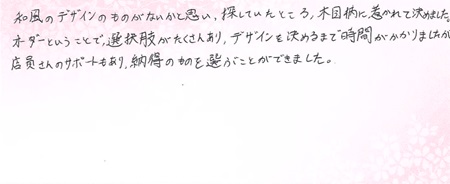 和風のデザインのものがないかと思い，探していたところ，木目柄に惹かれて決めました。
オーダーということで，選択肢がたくさんあり，デザインを決めるまで時間がかかりましたが
店員さんのサポートもあり，納得のものを選ぶことができました。